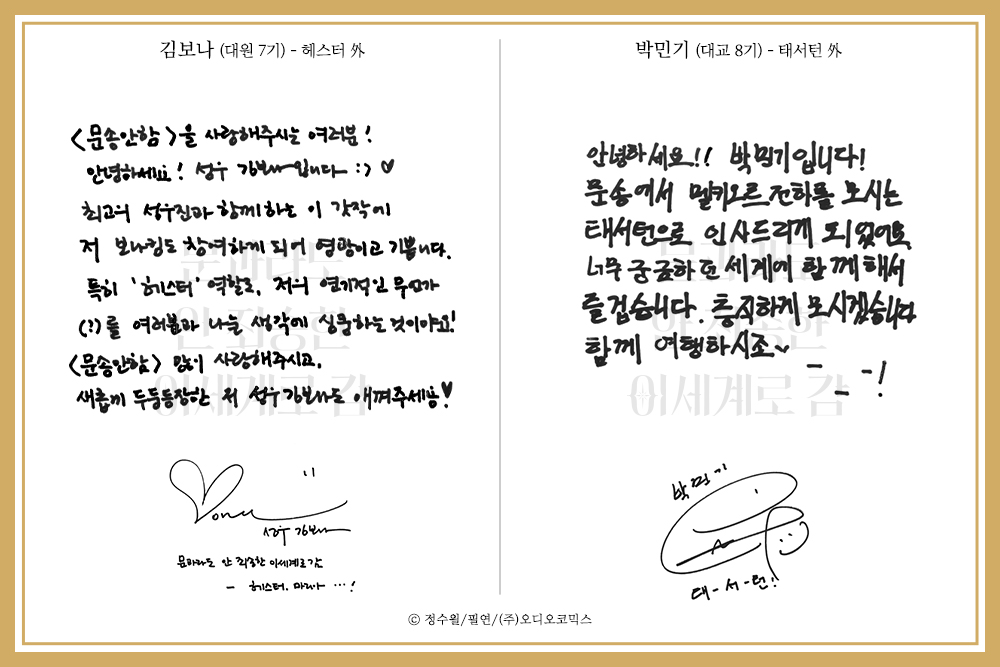 김보나 (대원 7기) - 헤스터 外
<문송안함>을 사랑해주시는 여러분!
안녕하세요! 성우 김보나입니다 :> ♥
최고의 성우진과 함께하는 이 갓작에
저 보나킴도 참여하게 되어 영광이고 기쁩니다.
특히 '헤스터' 역할로, 저의 연기적인 무언가
(?)를 여러분과 나눌 생각에 심쿵하는것이야요!
<문송안함> 많이 사랑해주시고,
새롭게 두둥등장한 저 성우김보나도 애껴주세용!♥
Bona
성우 김보나
문과라도 안 죄송한 이세계로 감
- 헤스터. 마리아 ...!
박민기 (대교 8기) - 태서턴 外
안녕하세요!! 박민기입니다!
문송에서 멜키오르 전하를 모시는
태서턴으로 인사드리게 되었어요
너무 궁금하던 세계에 함께해서
즐겁습니다. 충직하게 모시겠습니다
함께 여행하시죠~
박민기
태-서-턴!!
문과라도
안 죄송한
이세계로 감
문과라도
안 죄송한
이세계로 감
© 정수월/필연/(주)오디오코믹스